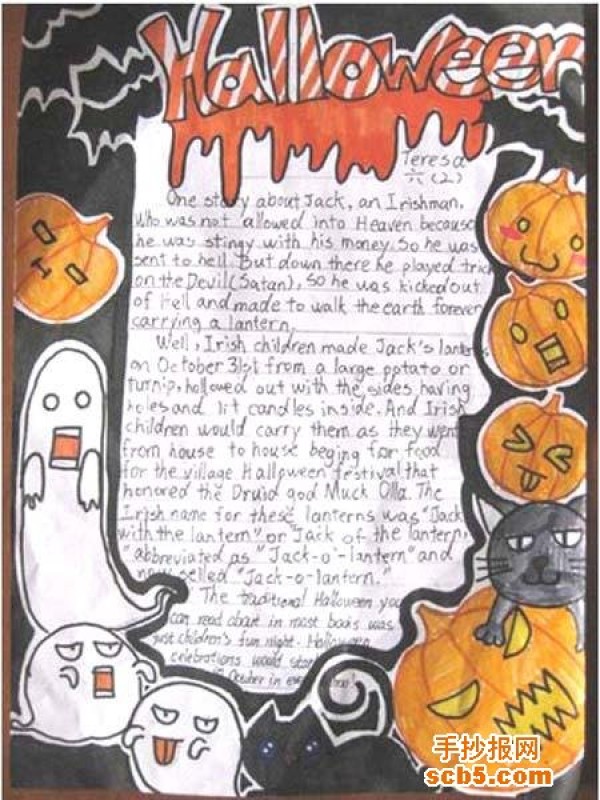 Halloween
Teresa
六(2)
One story about Jack, an Irishman,
who was not allowed into Heaven because
he was stingy with his money. So he was
sent to hell. But down there he played trick
on the Devil(Satan), So he was kicked out
of Hell and made to walk the earth forever
carrying a lantern.
Well, Irish children made Jack's lanterns
on October 31st from a large potato or
turnip, hollowed out with the sides having
holes and lit candles inside. And Irish
children would carry them as they went
from house to house beging for food
for the village Halloween festival that
honored the Druid god Muck Olla. The
Irish name for these lanterns was "Jack
with the lantern" or "Jack of the lantern,
"abbreviated as "Jack-o'-lantern" and
now selled "Jack-o-lantern."
The traditional Halloween you
can read about in most books was
just children's fun night. Halloween
celebrations would start
in October in every
手抄报网
scb5.com